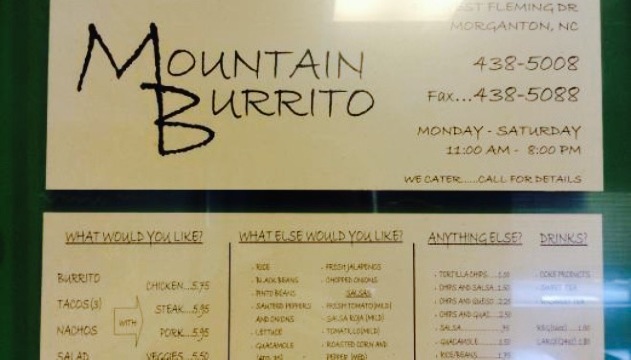 FLEMING DR
MORGANTON, NC
MOUNTAIN
BURRITO
438-5008
Fax...438-5088
MONDAY - SATURDAY
11:00 AM - 8:00 PM
WE CATER.....CALL FOR DETAILS
WHAT WOULD YOU LIKE?
BURRITO
TACOS(3)
NACHOS
SALAD
WITH
CHICKEN...5.75
STEAK...5.95
PORK...5.95
VEGGIES...5.50
WHAT ELSE WOULD YOU LIKE?
- RICE
- BLACK BEANS
- PINTO BEANS
- SAUTEED PEPPERS
AND ONIONS
- LETTUCE
- GUACAMOLE
- FRESH JALAPENOS
- CHOPPED ONIONS
SALSAS
- FRESH TOMATO (MILD)
- SALSA ROJA (MILD)
- TOMATILLO (MILD)
- ROASTED CORN AND
PEPPER (MED)
ANYTHING ELSE?
- TORTILLA CHIPS
- CHIPS AND SALSA
- CHIPS AND QUESO 2.25
- CHIPS AND GUAC
- SALSA .95
- GUACAMOLE
- RICE/BEANS
DRINKS?
- COKE PRODUCTS
- SWEET TEA